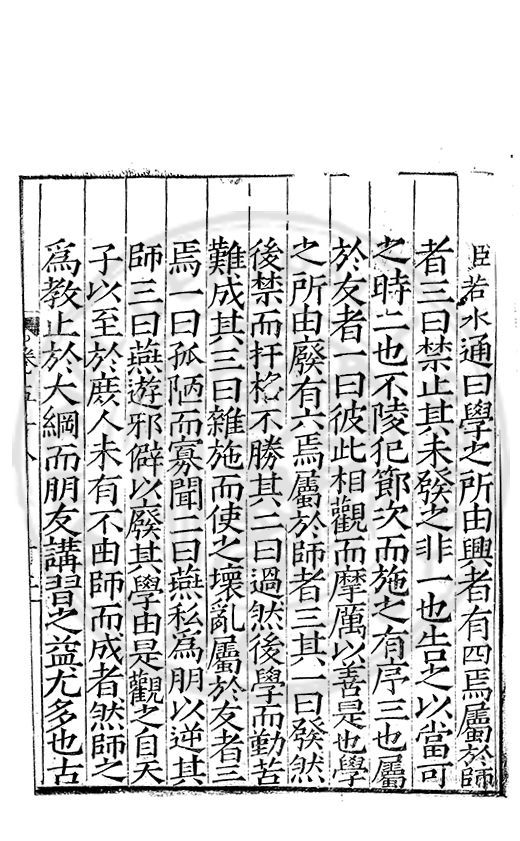 臣若水通曰學之所由興者有四焉屬於師
者三曰禁止其未發之非一也告之以當可
之時二也不陵犯節次而施之有序三也屬
於友者一曰彼此相觀而摩厲以善是也學
之所由廢有六焉屬於師者三其一曰發然
後禁而扞格不勝其二曰過然後學而勤苦
難成其三曰雜施而使之壞亂屬於友者三
焉一曰孤陋而寡聞二曰燕私爲朋以逆其
師三曰燕遊邪僻以廢其學由是觀之自天
子以至於庶人未有不由師而成者然師之
爲教止於大綱而朋友講習之益尤多也古
卷五十八